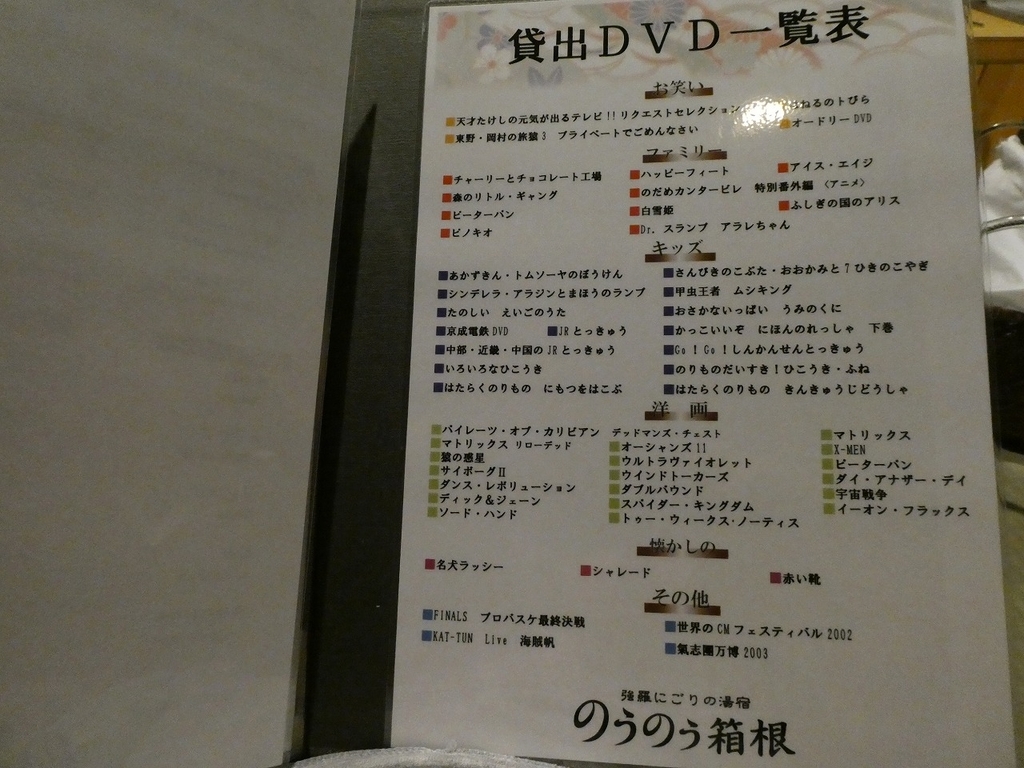 貸出DVD一覧表
お笑い
■天才たけしの元気が出るテレビ!!リクエストセレクション ねるのトびら
■東野・岡村の旅猿3 プライベートでごめんなさい ■オードリーDVD
ファミリー
■チャーリーとチョコレート工場 ■ハッピーフィート ■アイス・エイジ
■森のリトル・ギャング ■のだめカンタービレ 特別番外編 〈アニメ〉
■ピーターパン ■白雪姫 ■ふしぎの国のアリス
■ピノキオ ■Dr.スランプ アラレちゃん
キッズ
■あかずきん・トムソーヤのぼうけん ■さんびきのこぶた・おおかみと7ひきのこやぎ
■シンデレラ・アラジンとまほうのランプ ■甲虫王者 ムシキング
■たのしい えいごのうた ■おさかないっぱい うみのくに
■京成電鉄DVD ■JRとっきゅう ■かっこいいぞ にほんのれっしゃ 下巻
■中部・近畿・中国のJRとっきゅう ■Go!Go!しんかんせんとっきゅう
■いろいろなひこうき ■のりものだいすき!ひこうき・ふね
■はたらくのりもの にもつをはこぶ ■はたらくのりもの きんきゅうじどうしゃ
洋 画
■パイレーツ・オブ・カリビアン デッドマンズ・チェスト ■マトリックス
■マトリックス リローデッド ■オーシャンズ11 ■X-MEN
■猿の惑星 ■ウルトラヴァイオレット ■ピーターパン
■サイボーグⅡ ■ウインドトーカーズ ■ダイ・アナザー・デイ
■ダンス・レボリューション ■ダブルバウンド ■宇宙戦争
■ディック&ジェーン ■スパイダー・キングダム ■イーオン・フラックス
■ソード・ハンド ■トゥー・ウィークス・ノーティス
懐かしの
■名犬ラッシー ■シャレード ■赤い靴
その他
■FINALS プロバスケ最終決戦 ■世界のCMフェスティバル2002
■KAT-TUN Live 海賊帆 ■氣志團万博2003
強羅にごりの湯宿
のうのう箱根